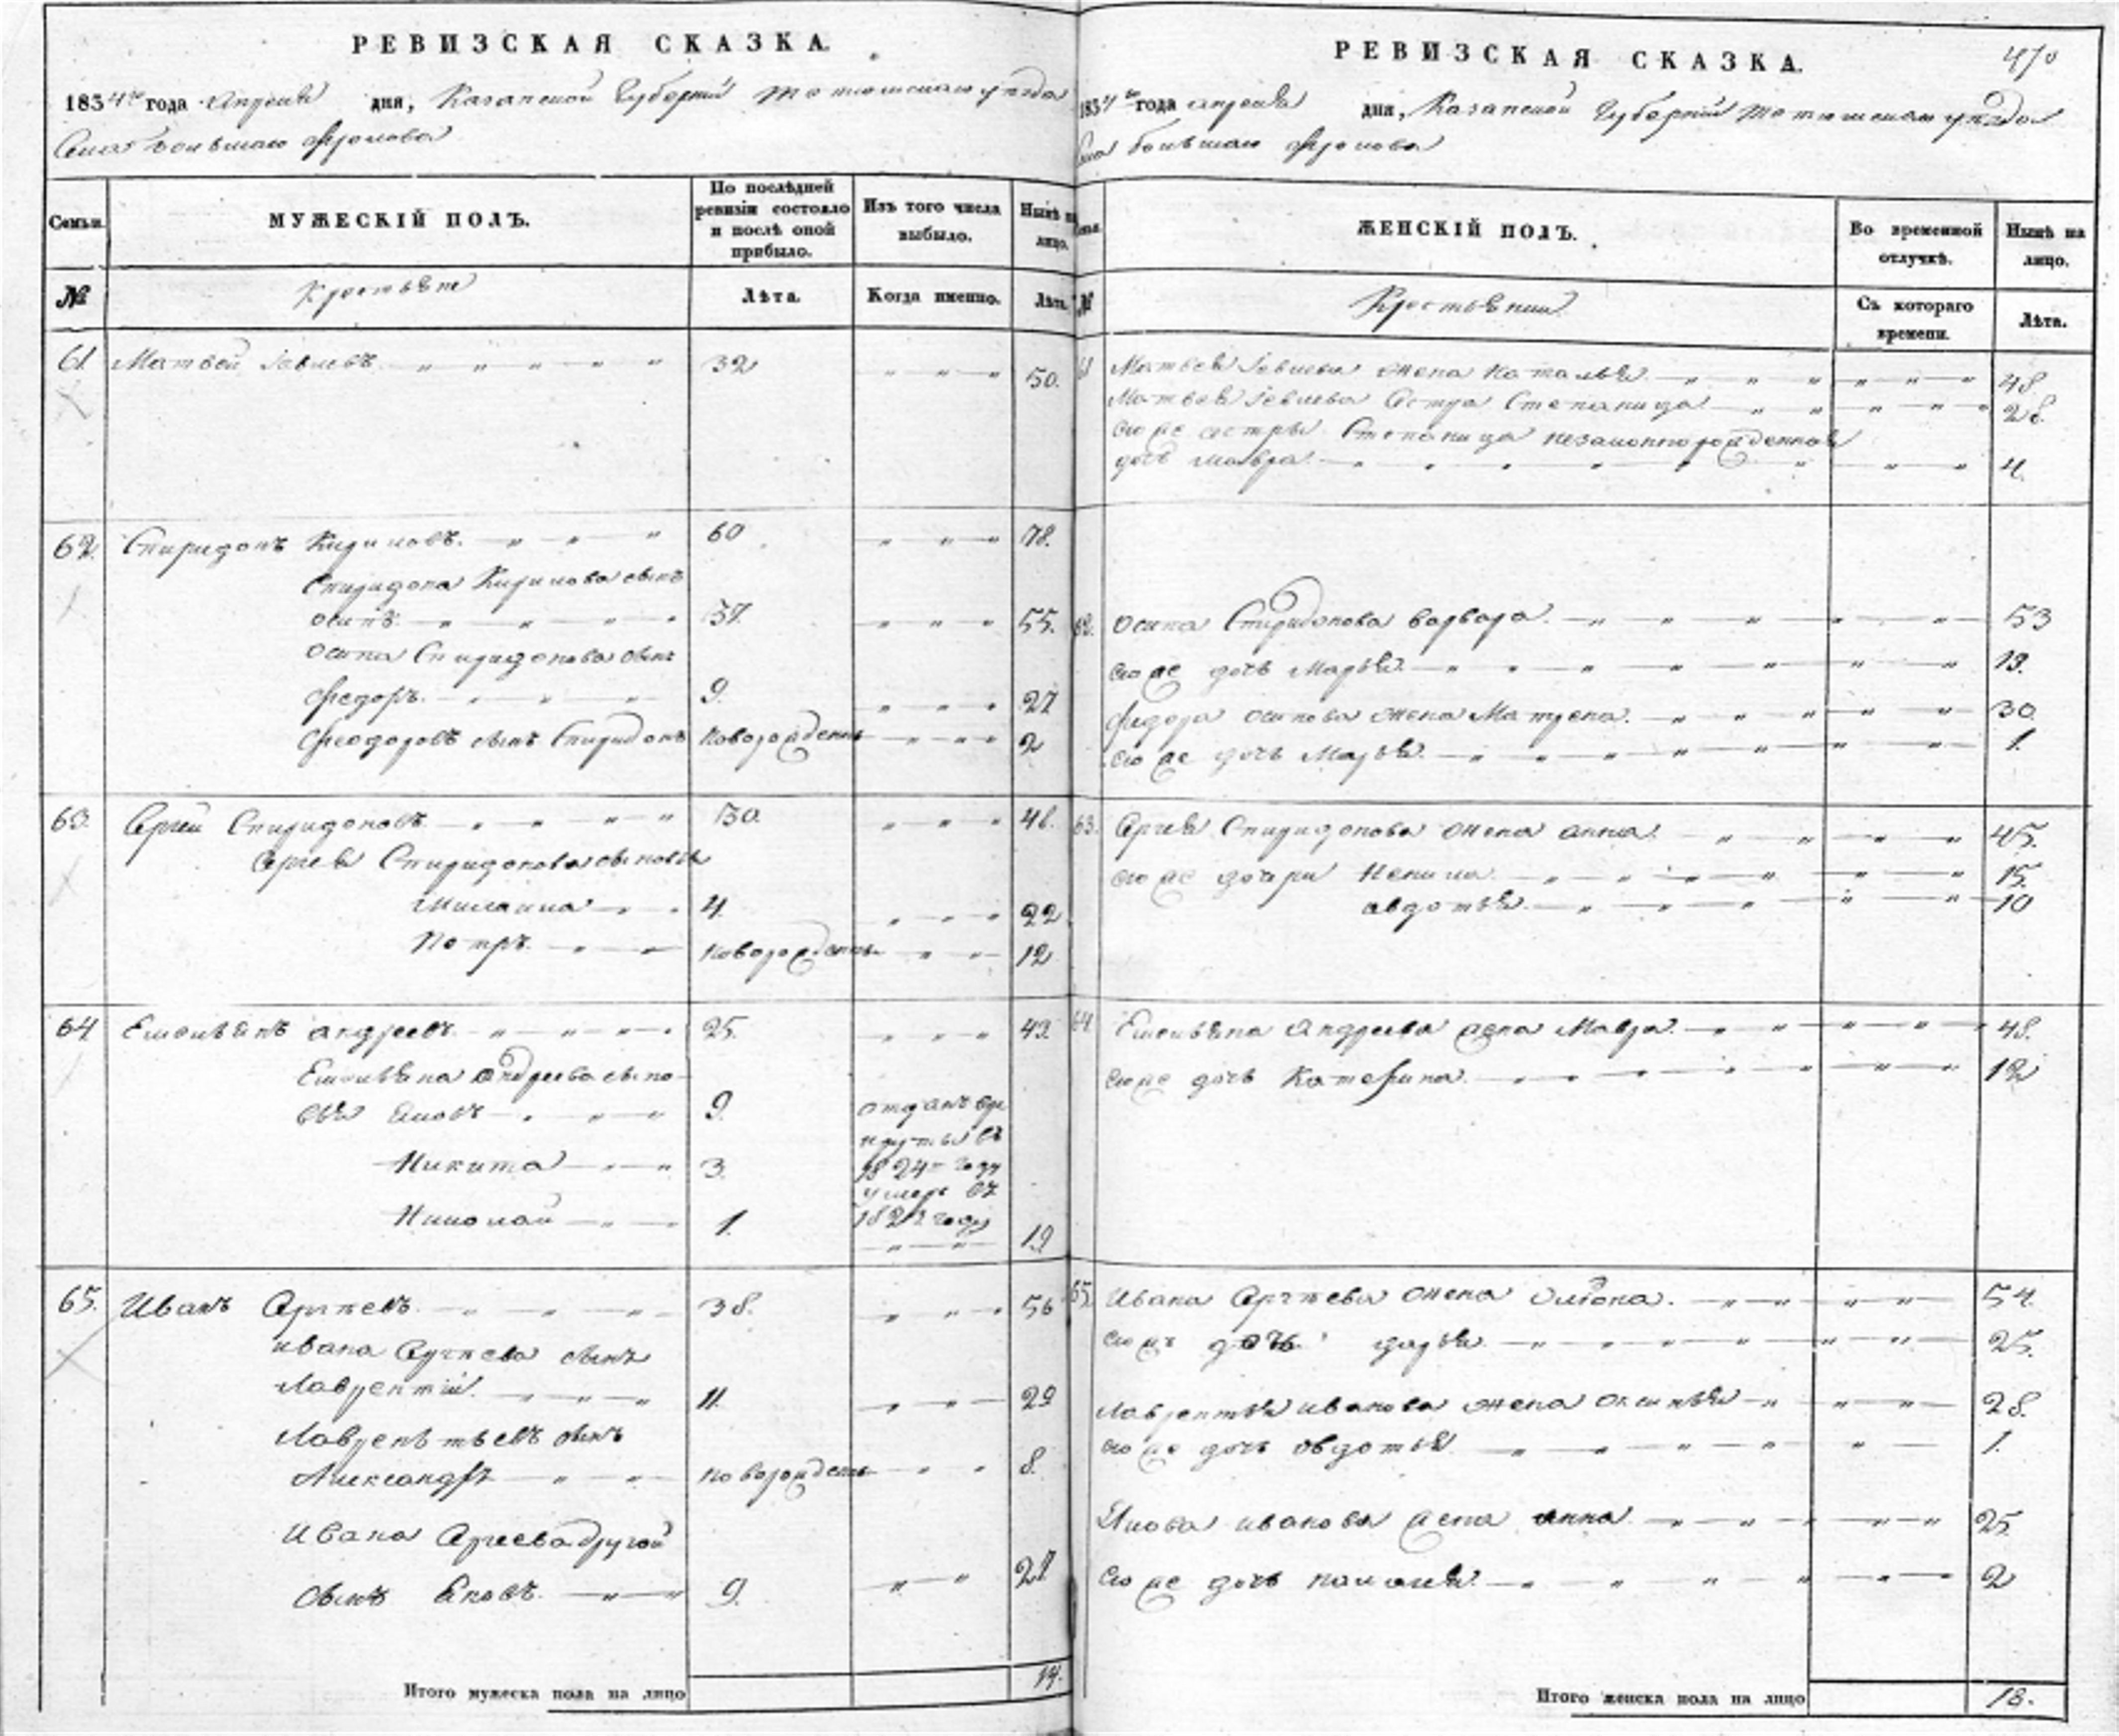 РЕВИЗСКАЯ СКАЗКА.
1834го года Апреля дня, Казанской Губернии Тетюшскаго уезда
Села Большаго Фролова
Семьи.
МУЖЕСКІЙ ПОЛЪ.
По послѣдней ревизіи состояло и послѣ оной прибыло.
Изъ того числа выбыло.
Нынѣ на лицо.
№
Крестьяне
Лѣта.
Когда именно.
Лѣта.
61 Матвей Иевлевъ 32 50.
62. Спиридонъ Кириловъ. 60 78.
Спиридона Кирилова сынъ
осипъ 37. 55.
осипа Спиридонова сынъ
федоръ. 9. 27
феодоровъ сынъ Спиридонъ Новорожденъ 2
63. Сергей Спиридоновъ 30. 48.
Сергея Спиридонова сыновья
4. 22
Петръ Новорожденъ 12
64 Емельянъ андреевъ 25. 43.
Емельяна андреева сыно-
вья Яковъ 9. отданъ въ ре
круты въ
Никита 3. 1824 году
умеръ въ
Николай 1. 1822 году
19
65. Иванъ Сергеевъ 38. 56
ивана Сергеева сынъ
Лаврентій. 11. 29
Лаврентьевъ сынъ
Александръ Новорожденъ 8.
Ивана Сергеева другой
сынъ Яковъ. 9. 27.
Итого мужеска пола на лицо 14.
РЕВИЗСКАЯ СКАЗКА.
470
1834го года апреля дня, Казанской Губернии Тетюшскаго уезда
Села большаго Фролова
Семьи.
ЖЕНСКІЙ ПОЛЪ.
Во временной отлучкѣ.
Нынѣ на лицо.
№
Крестьянки
Съ котораго времени.
Лѣта.
61 Матвея Иевлева жена Наталья 48
Матвея Иевлева Сестра Степанида 28.
ею же сестры Степаниды незаконнорожденная
дочь Мавра 4.
62. осипа Спиридонова варвара. 53
ею же дочь Марья 13.
федора осипова жена Матрена. 30.
ею же дочь Марья. 1.
63. Сергея Спиридонова жена анна. 45.
ею же дочери Ненила 15.
авдотья 10
64. Емельяна Андреева жена Мавра. 48.
ею же дочь Катерина. 12
65. Ивана Сергеева жена Олгона. 54.
ею же дочь дарья 25.
Лаврентья иванова жена Аксинья 28.
ею же дочь овдотья 1.
Якова иванова жена анна 25.
ею же дочь 2
Итого женска пола на лицо 18.